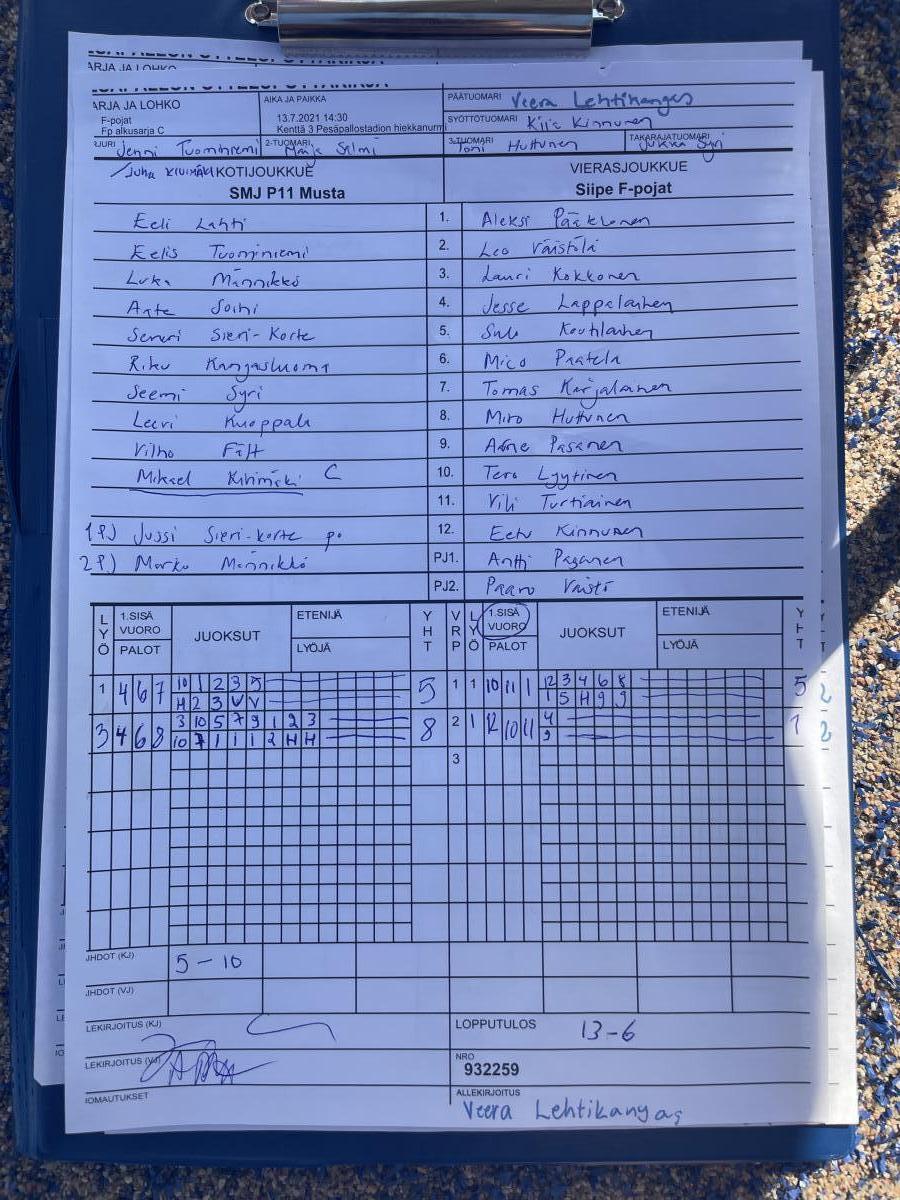 ARJA JA LOHKO
ARJA JA LOHKO
F-pojat
Fp alkusarja C
AIKA JA PAIKKA
13.7.2021 14:30
Kenttä 3 Pesäpallostadion hiekkanurmi
PÄÄTUOMARI Veera Lehtikangas
SYÖTTÖTUOMARI Kinnunen
Jenni Tuominiemi
2-TUOMARI Maija Salmi
3-TUOMARI Toni Huttunen
TAKARAJATUOMARI Jukka Syri
Juha Kivimäki KOTIJOUKKUE
SMJ P11 Musta
VIERASJOUKKUE
Siipe F-pojat
Eeli Lahti 1. Aleksi Pääkkönen
Eelis Tuominiemi 2. Leo Väistölä
Luka Männikkö 3. Lauri Kokkonen
Atte Soini 4. Jesse Lappalainen
Sieri-Korte 5. Koutilainen
Riku Kangasluoma 6. Mico Paatela
Seemi Syri 7. Tomas Karjalainen
Leevi Kuoppala 8. Miro Huttunen
Vilho Fält 9. Aarne Pasanen
Mikael Kivimäki C 10. Tero Lyytinen
11. Vili Turtiainen
1P.) Jussi Sieri-korte po 12. Eetu Kinnunen
2P.) Marko Männikkö PJ1. Antti Pasanen
PJ2. Paavo Väistö
LYÖ 1.SISÄ VUORO PALOT JUOKSUT ETENIJÄ LYÖJÄ YHT VRP LYÖ 1.SISÄ VUORO PALOT JUOKSUT ETENIJÄ LYÖJÄ YHT
1 4 6 7 10 1 2 3 5 5 1 1 10 11 1 12 3 4 6 8 5
H 2 3 V V 1 5 H 9 9
3 4 6 8 3 10 5 7 9 1 2 3 8 2 1 12 10 11 4 1
10 7 1 1 1 2 H H 9
3
JHDOT (KJ) 5-10
JHDOT (VJ)
LEKIRJOITUS (KJ)
LOPPUTULOS 13-6
LEKIRJOITUS (VJ)
NRO
932259
IOMAUTUKSET
ALLEKIRJOITUS
Veera Lehtikangas